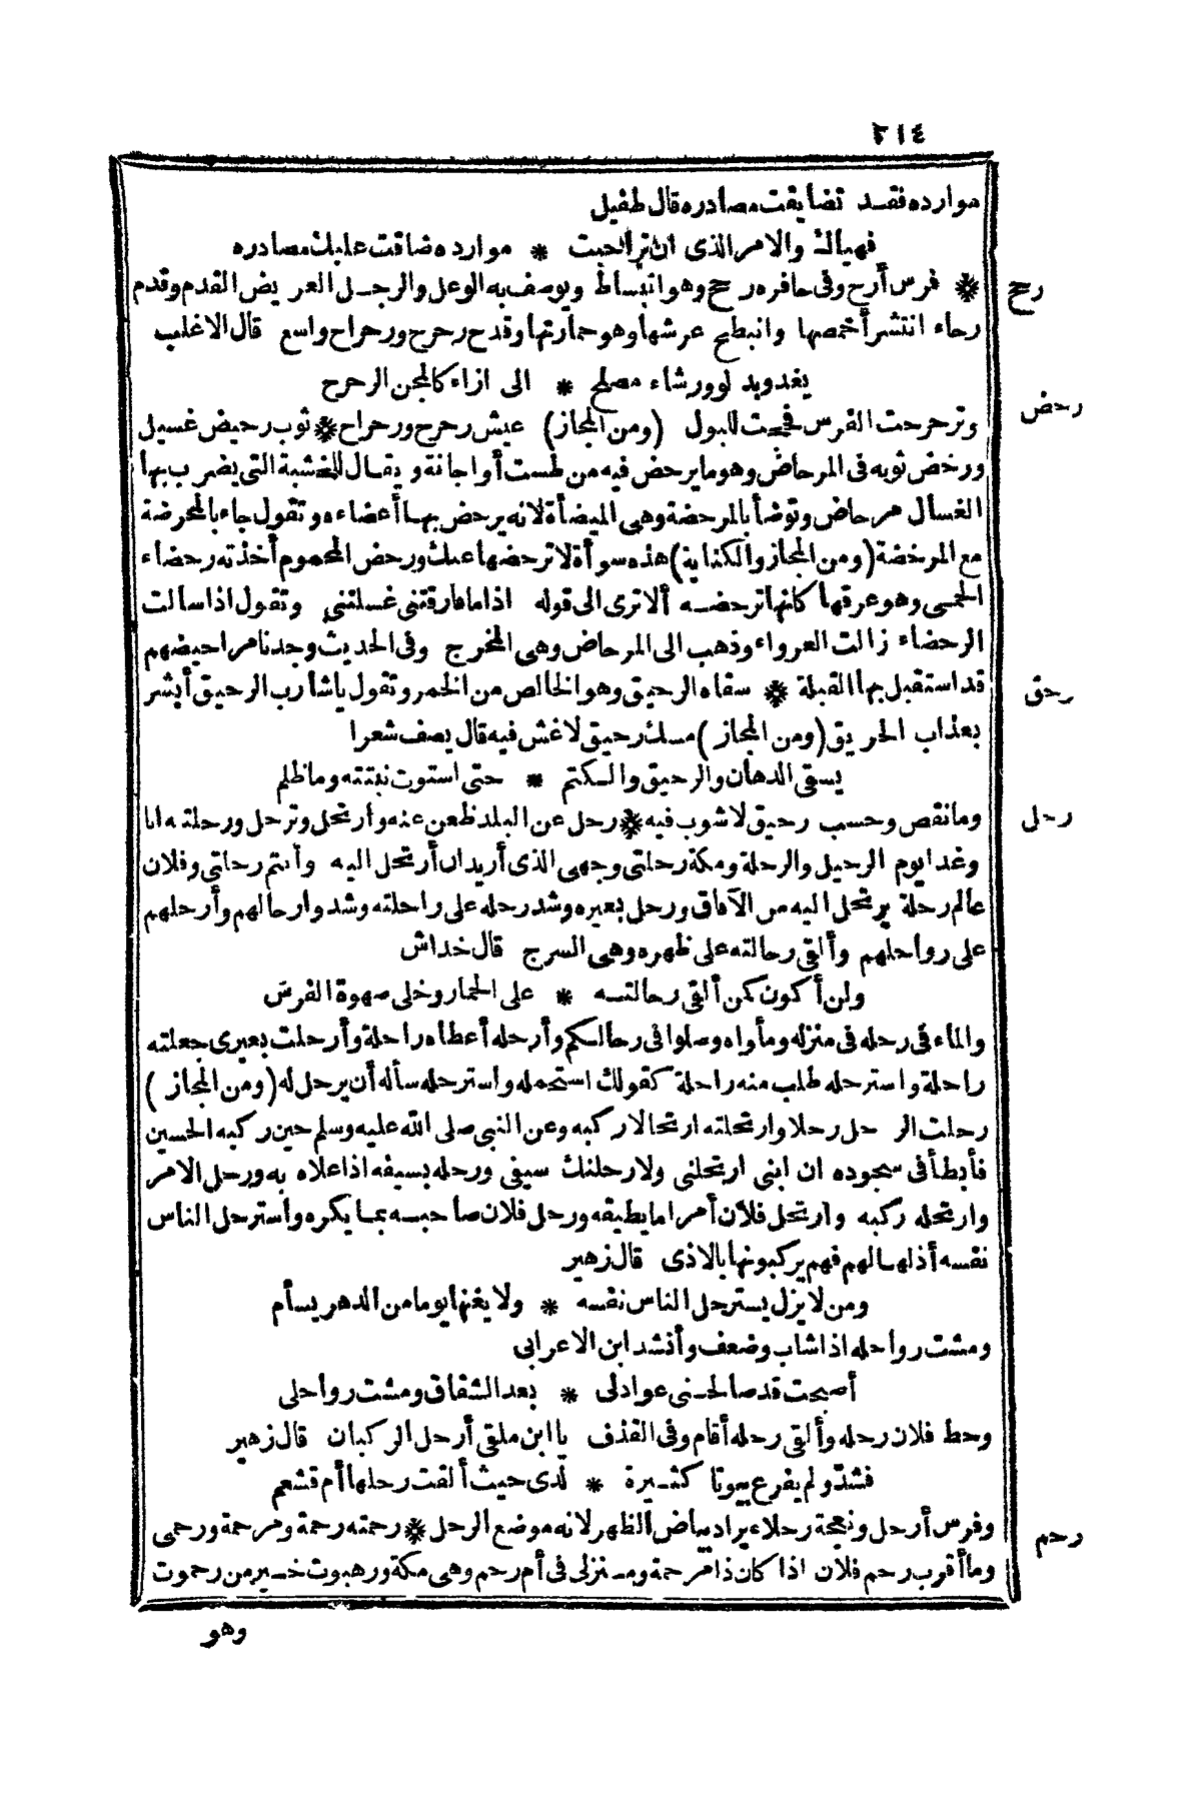 ٢١٤
موارده فقد تضايقت مصادره قال طفيل
فهياك والامر الذى ان تراحبت * موارده ضاقت عليك مصادره
رحح
* فرس أرح وفى حافره رحح وهو انبساط ويوصف به الوعل والرجل العريض القدم وقدم
رحاء انتشر أخمصها وانبطح عرشها وهو حمارتها وقدح رحرح ورحراح واسع قال الاغلب
يغدو بد لو ورشاء مصلح * الى ازاء كالمجن الرحرح
رحض
وترحرحت الفرس فحجت للبول (ومن المجاز) عيش رحرح ورحراح * ثوب رحيض غسيل
ورحض ثوبه فى المرحاض وهو ما يرحض فيه من طست أو اجانة ويقال للخشبة التى يضرب بها
الغسال مرحاض وتوضأ بالمرحضة وهى الميضأة لانه يرحض بها أعضاءه وتقول جاء بالمحرضة
مع المرحضة (ومن المجاز والكناية) هذه سوأة لا ترحضها عنك ورحض المحموم أخذته رحضاء
الحمى وهو عرقها كانها ترحضه ألا ترى الى قوله اذا ما فارقتنى غسلتنى وتقول اذا سالت
الرحضاء زالت العرواء وذهب الى المرحاض وهى المخرج وفى الحديث وجدنا مراحيضهم
رحق
قد استقبل بها القبلة * سقاه الرحيق وهو الخالص من الخمر وتقول يا شارب الرحيق أبشر
بعذاب الحريق (ومن المجاز) مسك رحيق لا غش فيه قال يصف شعرا
يسقى الدهان والرحيق والكتم * حتى استوت نبتته وما ظلم
رحل
وما نقص وحسب رحيق لا شوب فيه * رحل عن البلد ظعن عنه وارتحل وترحل ورحلته انا
وغدا يوم الرحيل والرحلة ومكة رحلتى وجهى الذى أريد ان أرتحل اليه وأنتم رحلتى وفلان
عالم رحلة يرتحل اليه من الآفاق ورحل بعيره وشد رحله على راحلته وشدوا رحالهم وأرحلهم
على رواحلهم وألقى رحالته على ظهره وهى السرج قال خداش
ولن أكون كمن ألقى رحالته * على الحمار وخلى صهوة الفرس
والماء فى رحله فى منزله ومأواه وصلوا فى رحالكم وأرحله أعطاه راحلة وأرحلت بعيرى جعلته
راحلة واسترحله طلب منه راحلة كقولك استحمله واسترحله سأله أن يرحل له (ومن المجاز)
رحلت الرحل رحلا وارتحلته ارتحالا ركبه وعن النبى صلى الله عليه وسلم حين ركبه الحسين
فأبطأ فى سجوده ان ابنى ارتحلنى ولا رحلنك سيفى ورحله بسيفه اذا علاه به ورحل الامر
وارتحله ركبه وارتحل فلان أمرا ما يطيقه ورحل فلان صاحبه بما يكره واسترحل الناس
نفسه أذلها لهم فهم يركبونها بالاذى قال زهير
ومن لا يزل يسترحل الناس نفسه * ولا يغنها يوما من الدهر يسأم
ومشت رواحله اذا شاب وضعف وأنشد ابن الاعرابى
أصبحت قد صالحنى عواذلى * بعد الشقاق ومشت رواحلى
وحط فلان رحله وألقى رحله أقام وفى القذف يا ابن ملقى أرحل الركبان قال زهير
فشد ولم يفرع بيوتا كثيرة * لدى حيث ألقت رحلها أم قشعم
رحم
وفرس أرحل ونعجة رحلاء يراد بياض الظهر لانه موضع الرحل * رحمته رحمة ومرحمة ورحمى
وما أقرب رحم فلان اذا كان ذا مرحمة ومنزلى فى أم رحم وهى مكة ورهبوت خير من رحموت
وهو